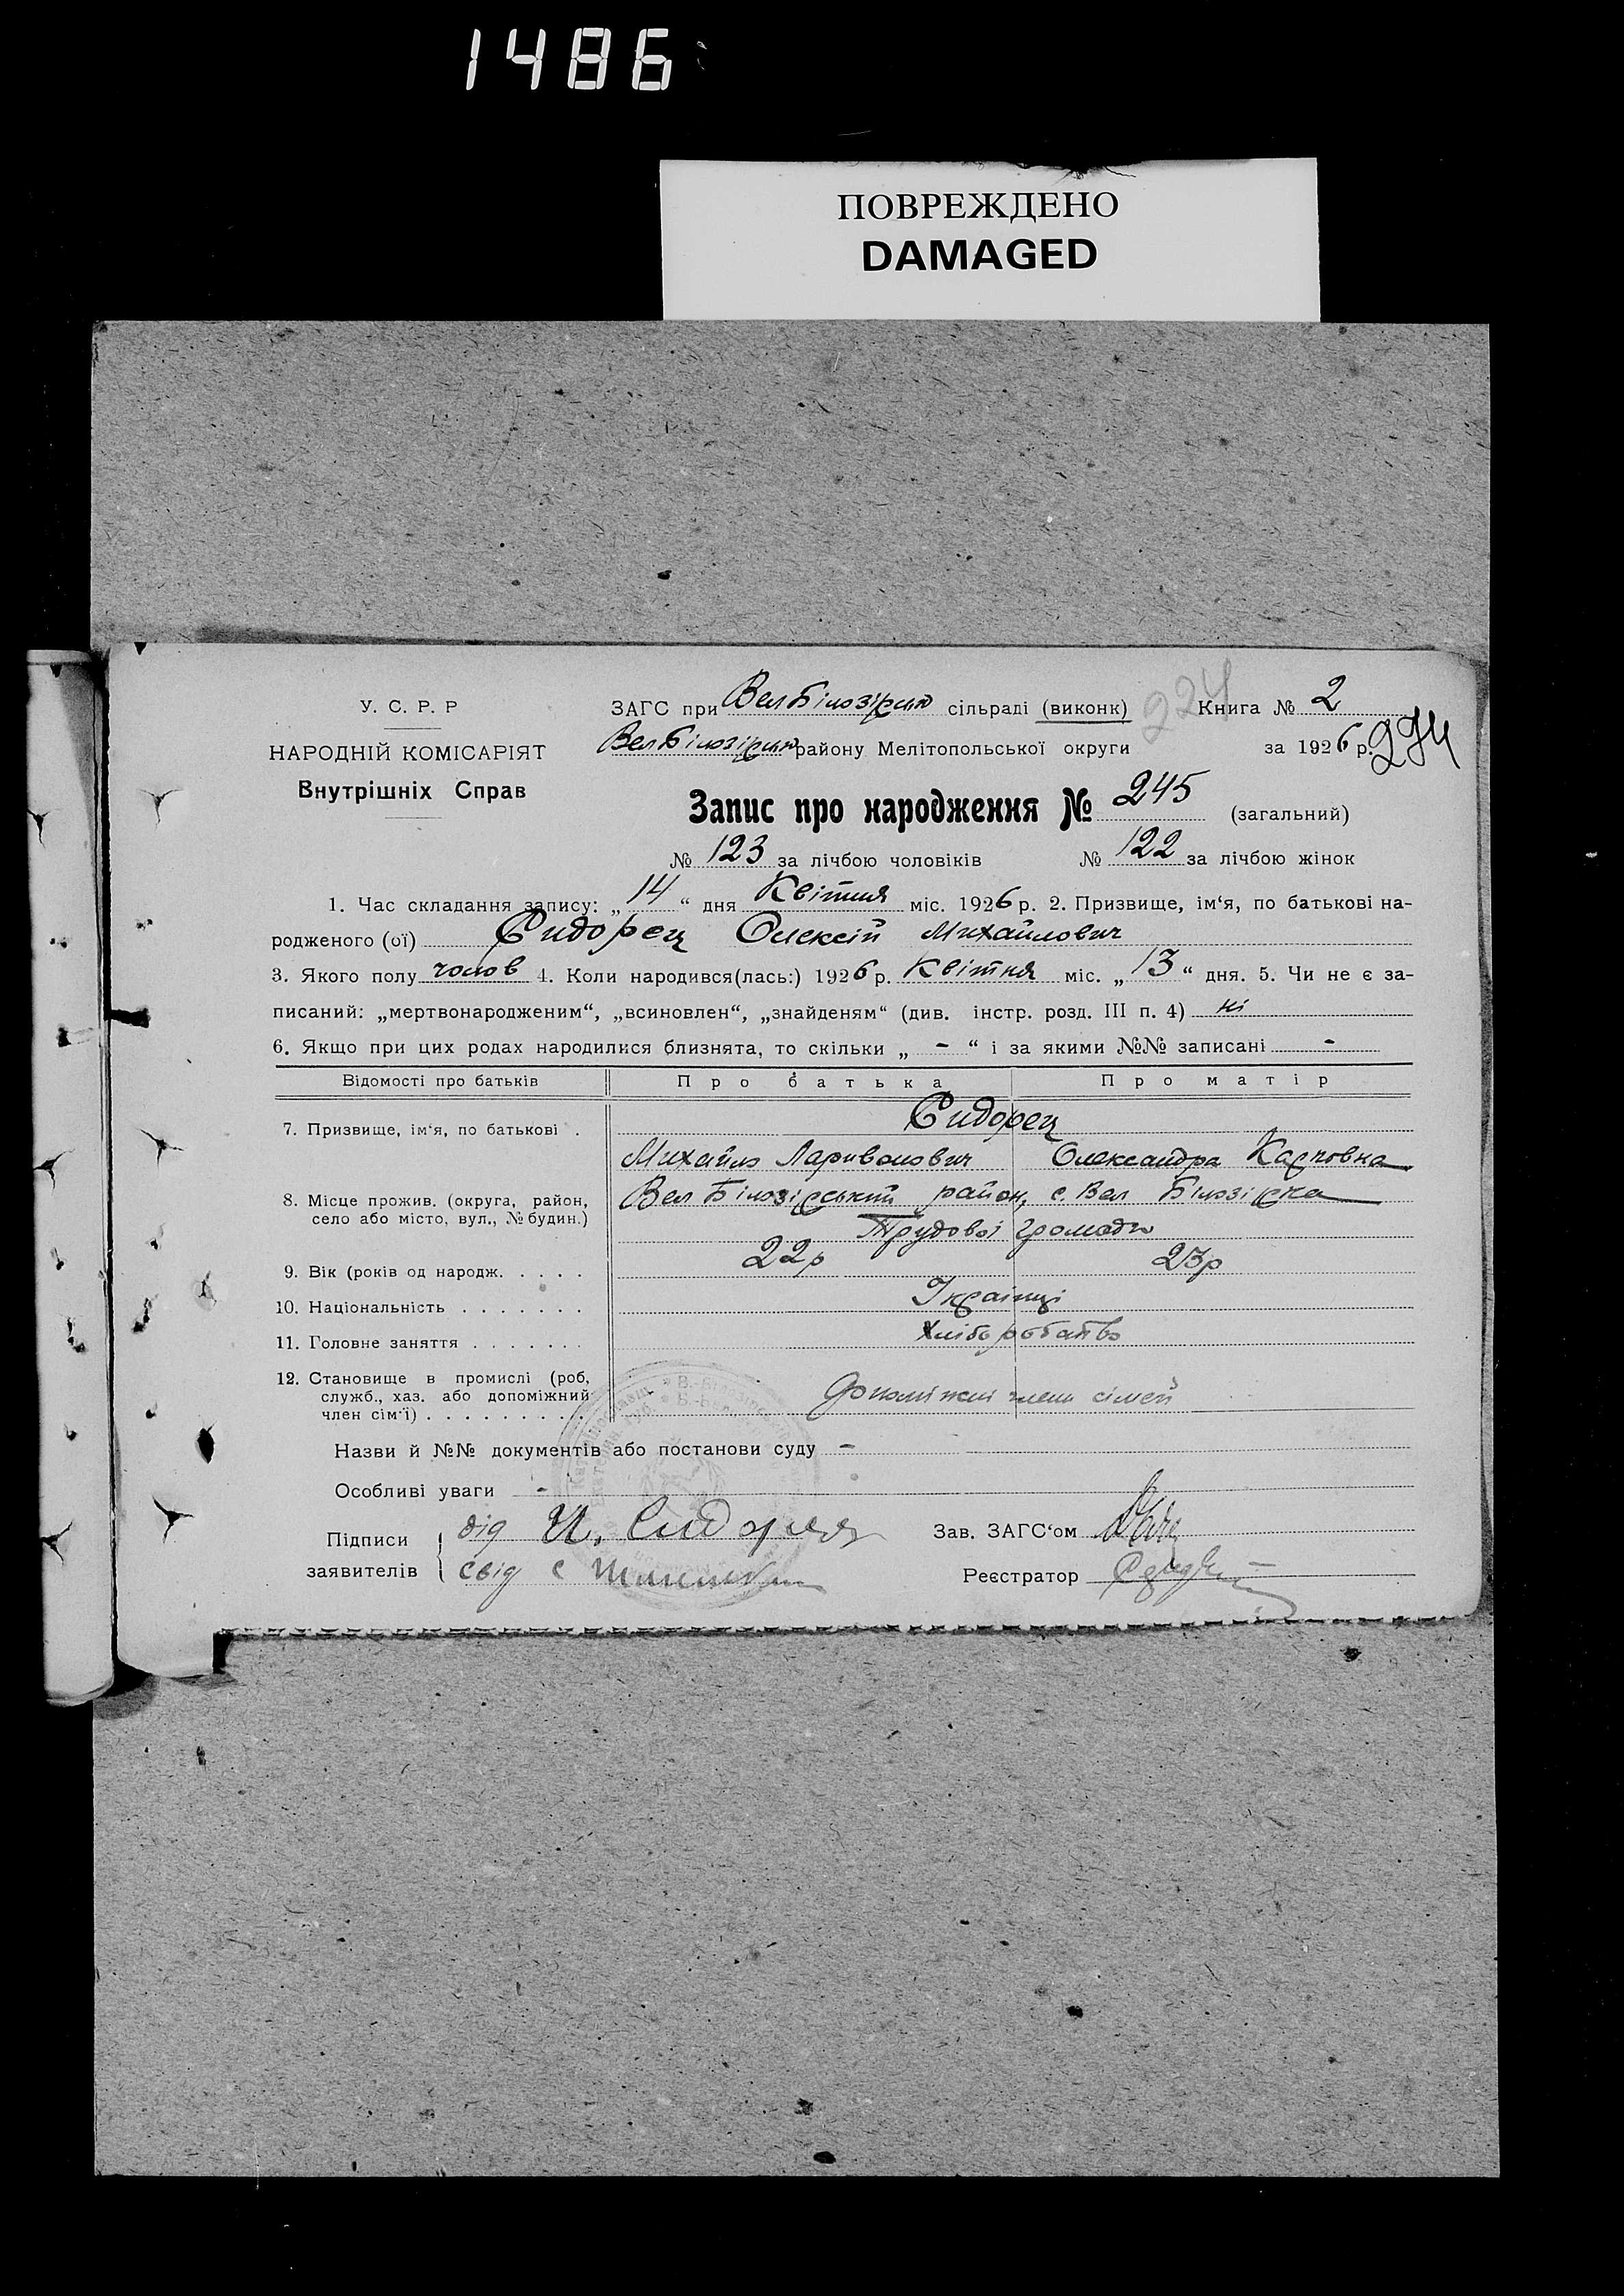 1486
ПОВРЕЖДЕНО
DAMAGED
224
У. С. Р. Р
НАРОДНІЙ КОМІСАРІЯТ
Внутрішніх Справ
ЗАГС при Вел Білозірськ сільраді (виконк) Книга № 2
Вел Білозірськ району Мелітопольської округи за 1926 р. 294
Запис про народження № 245 (загальний)
№ 123 за лічбою чоловіків № 122 за лічбою жінок
1. Час складання запису: „14“ дня Квітня міс. 1926 р. 2. Призвище, ім‘я, по батькові на-
родженого (ої) Сидорец Олексій Михайлович
3. Якого полу чолов 4. Коли народився(лась:) 1926 р. Квітня міс. „13“ дня. 5. Чи не є за-
писаний: „мертвонародженим“, „всиновлен“, „знайденям“ (див. інстр. розд. III п. 4) ні
6. Якщо при цих родах народилися близнята, то скільки „ - “ і за якими №№ записані -
Відомості про батьків Про батька Про матір
7. Призвище, ім‘я, по батькові . Сидорец
Михайло Ларивонович Олександра Карповна
8. Місце прожив. (округа, район, село або місто, вул., № будин.) Вел Білозірський район, с. Вел Білозірка
Трудової громади
9. Вік (років од народж. . . . . 22р 23р
10. Національність . . . . . . . Українці
11. Головне заняття . . . . . . . Хліборобство
12. Становище в промислі (роб, служб., хаз. або допоміжний член сім‘ї) . . . . . . . . . допоміжні члени сімей
Назви й №№ документів або постанови суду -
Особливі уваги -
Підписи заявителів { дід И. Сидорец
свід с
Зав. ЗАГС‘ом
Реєстратор